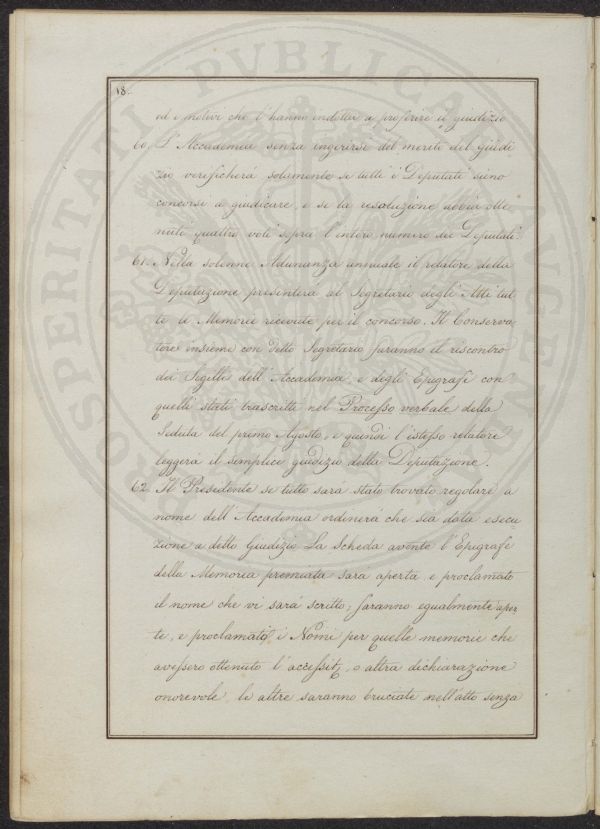 18.
ed i motivi che l'hanno indotta a proferire il giudizio
60. L'Accademia senza ingerirsi del merito del giudi
zio verificherà solamente se tutti i Deputati sieno
concorsi a giudicare, e se la resoluzione abbia otte
nuti quattro voti sopra l'intero numero dei Deputati.
61. Nella solenne Adunanza annuale il relatore della
Deputazione presenterà al Segretario degli Atti tut
te le Memorie ricevute per il concorso. Il Conserva
tore insieme con detto Segretario faranno il riscontro
dei Sigilli dell'Accademia e degli Epigrafi con
quelli stati trascritti nel Processo verbale della
Seduta del primo Agosto, e quindi l'istesso relatore
leggerà il semplice giudizio della Deputazione.
62. Il Presidente se tutto sarà stato trovato regolare a
nome dell'Accademia ordinerà che sia data esecu
zione a detto Giudizio. La Scheda avente l'Epigrafe
della Memoria premiata sarà aperta e proclamato
il nome che vi sarà scritto, saranno egualmente aper
te, e proclamati i Nomi per quelle memorie che
avessero ottenuto l'accessit, o altra dichiarazione
onorevole, le altre saranno bruciate nell'atto senza
PROSPERITATI PVBLICAE AVGENDAE